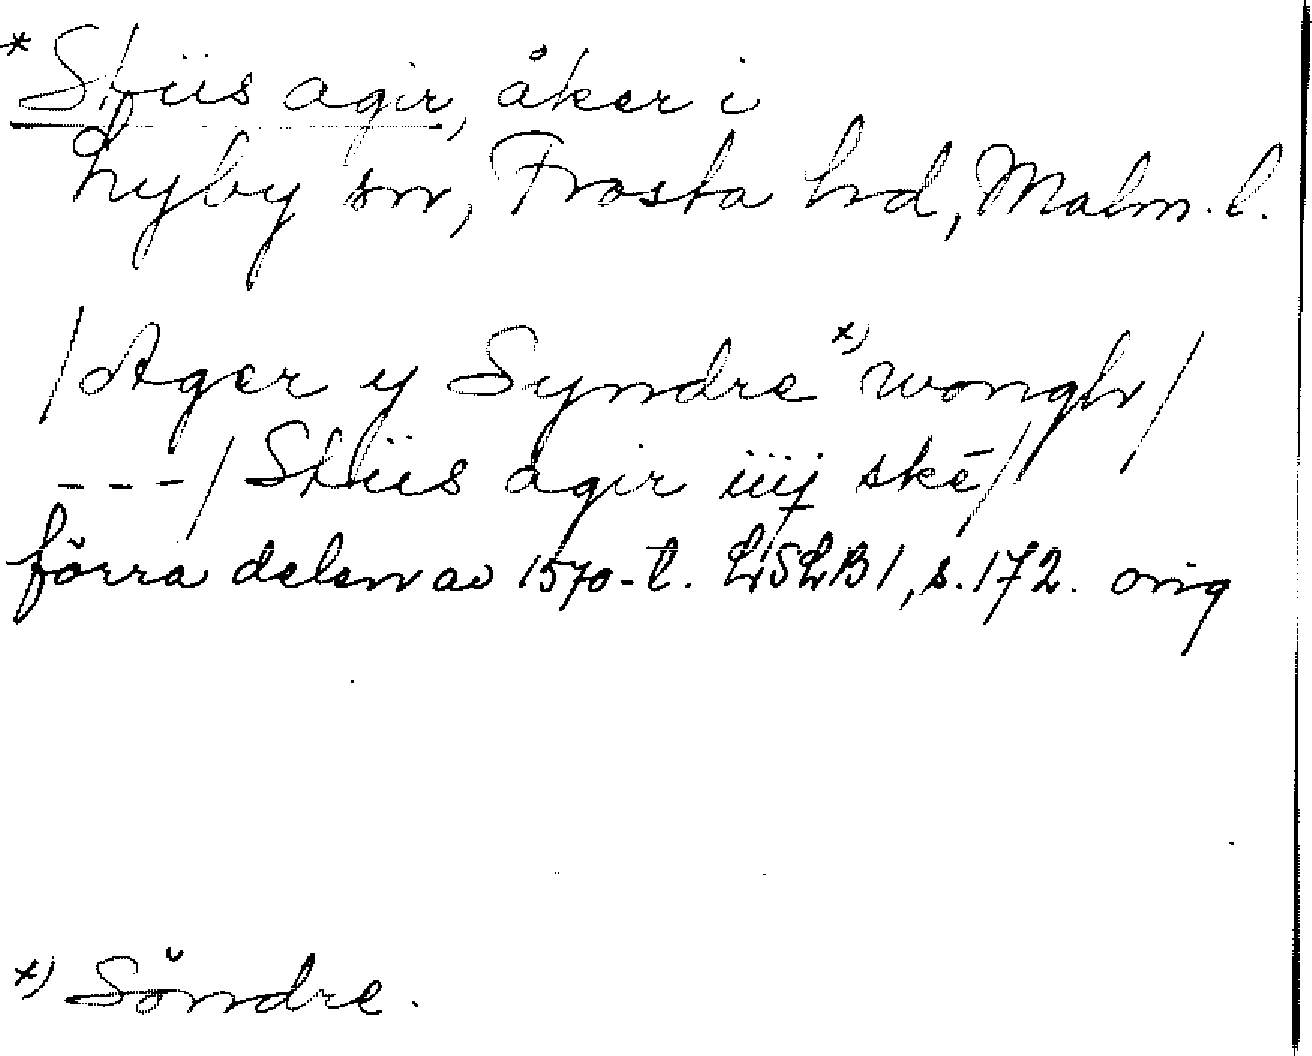 *Stüs agir, åker i
Lyby sn, Frosta hd, Malm. l.
/Ager y Syndre *) wongh/
---/Stüs agir iiij skē/
förra delen av 1570-t. LSLB1, s. 172. orig
*) Söndre.